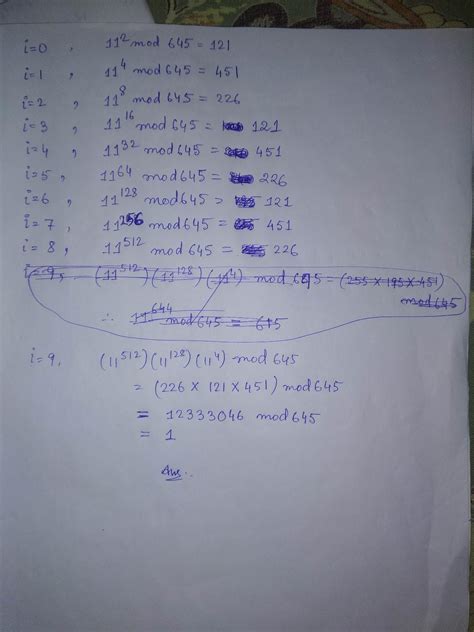 i=0, 11² mod 645 = 121
i=1, 11⁴ mod 645 = 451
i=2, 11⁸ mod 645 = 226
i=3, 11¹⁶ mod 645 = 121
i=4, 11³² mod 645 = 451
i=5, 11⁶⁴ mod 645 = 226
i=6, 11¹²⁸ mod 645 = 121
i=7, 11²⁵⁶ mod 645 = 451
i=8, 11⁵¹² mod 645 = 226
i=9, (11⁵¹²)(11¹²⁸)(11⁴) mod 645 = (255 × 195 × 451)
mod 645
∴ 11⁶⁴⁴ mod 645 = 615
i=9, (11⁵¹²)(11¹²⁸)(11⁴) mod 645
= (226 × 121 × 451) mod 645
= 12333046 mod 645
= 1
Ans.